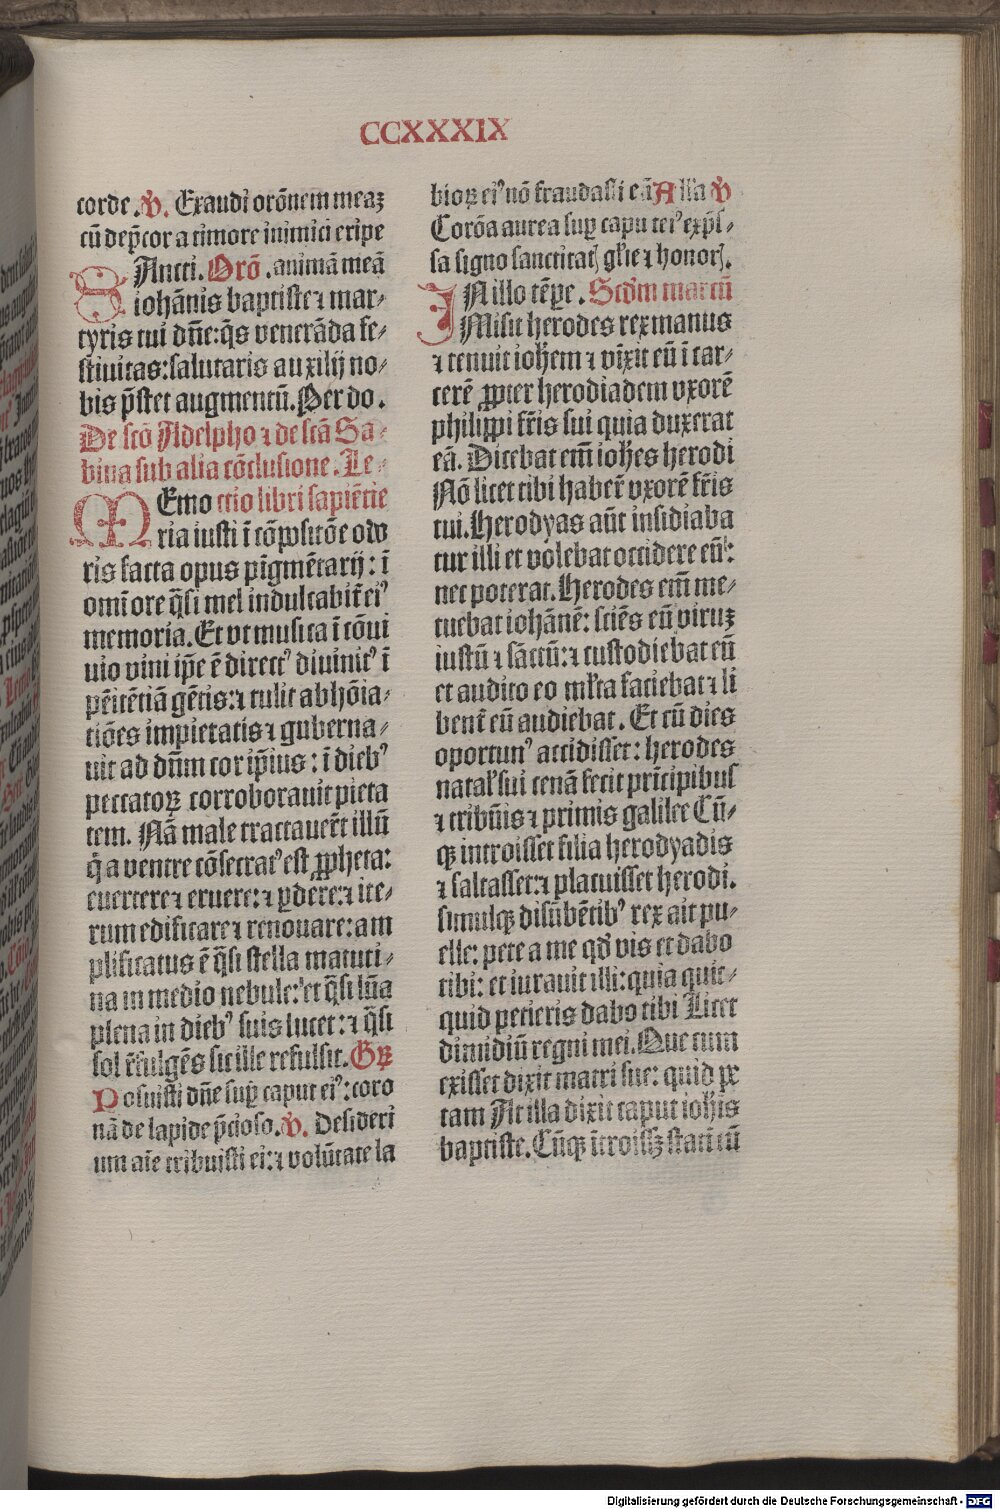 CCXXXIX
corde. V̄. Exaudi orōnem meaꝫ
cū dep̄cor a timore inimici eripe
SAncti. Orō. animā meā
iohānis baptiste ⁊ mar⸗
tyris tui dn̄e: q̄s venerāda fe⸗
stiuitas: salutaris auxilij no⸗
bis p̄stet augmentū. Per do.
De scō Adelpho ⁊ de scā Sa⸗
bina sub alia cōclusione. Le⸗
MEmo ctio libri sapiētie
ria iusti ī cōpositōe odo
ris facta opus pigmētarij: ī
omī ore q̄si mel indulcabit̄ eiꝰ
memoria. Et vt musica ī cōui
uio vini ip̄e ē directꝰ diuinitꝰ ī
pēitētiā gētis: ⁊ tulit abhōia⸗
tiōes impietatis ⁊ guberna⸗
uit ad dn̄m cor ip̄ius: ī diebꝰ
peccatoꝝ corroborauit pieta
tem. Nā male tractauer̄t illū
q̄ a ventre cōsecratꝰ est ꝓpheta:
euertere ⁊ eruere: ⁊ ꝑdere: ⁊ ite⸗
rum edificare ⁊ renouare: am
plificatus ē q̄si stella matuti⸗
na in medio nebule: et q̄si lūa
plena in diebꝰ suis lucet: ⁊ q̄si
sol r̄fulgēs sic ille refulsit. Gꝝ
Posuisti dn̄e suꝑ caput eiꝰ: coro
nā de lapide p̄cioso. V̄. Desideri
um aīe tribuisti ei: ⁊ volūtate la
bioꝝ eiꝰ nō fraudasti eā Alla V̄
Corōa aurea suꝑ caput eiꝰ exp̄s⸗
sa signo sanctitatꝭ gl̄ie ⁊ honorꝭ.
IN illo tēꝑe. Scd̄m marcū
Misit herodes rex manus
⁊ tenuit ioh̄em ⁊ vīxit eū ī car⸗
cerē ꝓpter herodiadem vxorē
philippi fr̄is sui quia duxerat
eā. Dicebat em̄ ioh̄es herodi
Nō licet tibi haber̄ vxorē fr̄is
tui. Herodyas aūt insidiaba
tur illi et volebat occidere eū:
nec poterat. Herodes em̄ me⸗
tuebat iohānē: sciēs eū viruꝫ
iustū ⁊ sāctū: ⁊ custodiebat eū
et audito eo ml̄ta faciebat ⁊ li
bent̄ eū audiebat. Et cū dies
oportunꝰ accidisset: herodes
natal̄ sui cenā fecit prīcipibus
⁊ tribūis ⁊ primis galilee Cū⸗
qꝫ introisset filia herodyadis
⁊ saltasset: ⁊ placuisset herodi.
simulqꝫ discūbētibꝰ rex ait pu⸗
elle: pete a me qd̄ vis et dabo
tibi: et iurauit illi: quia quic⸗
quid petieris dabo tibi Licet
dimidiū regni mei. Que cum
exisset dixit matri sue: quid pe
tam At illa dixit caput ioh̄is
baptiste. Cūqꝫ ītroissꝫ statī cū
Digitalisierung gefördert durch die Deutsche Forschungsgemeinschaft - DFG